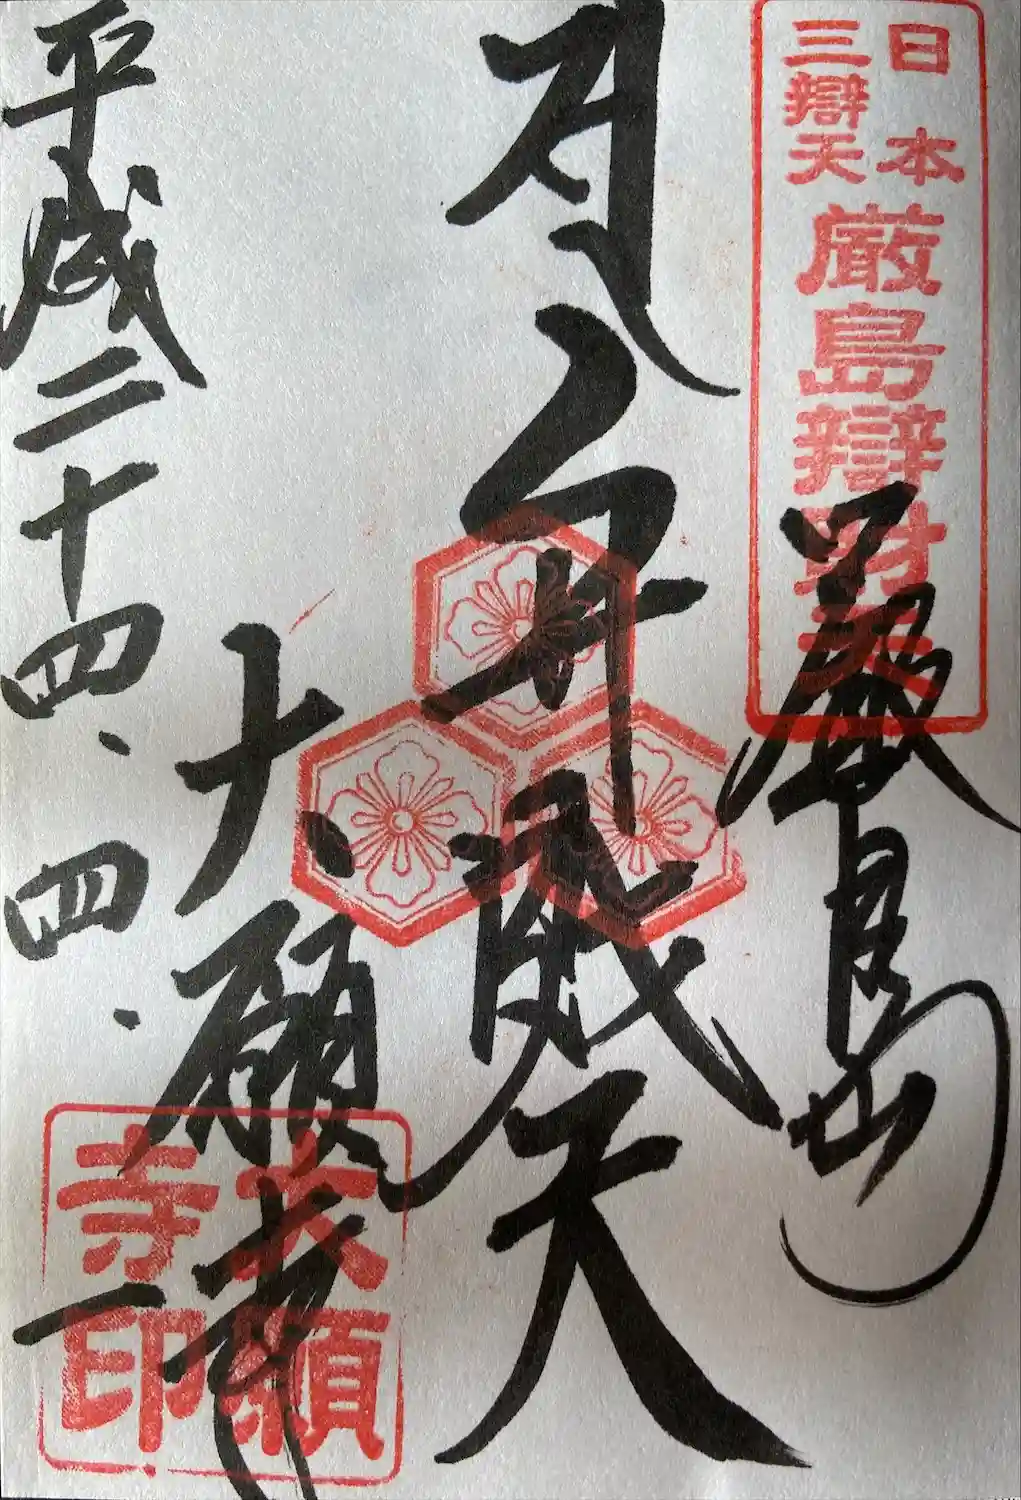 日本
三辯天
厳島辯財天
嚴島
弁財天
大願寺
平成二十四、四、
大願
寺印